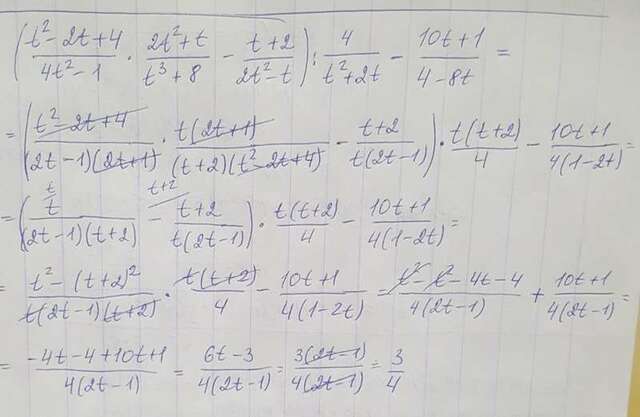 (t²-2t+4/4t²-1 · 2t²+t/t³+8 - t+2/2t²-t) : 4/t²+2t - 10t+1/4-8t =
= (t²-2t+4/(2t-1)(2t+1) · t(2t+1)/(t+2)(t²-2t+4) - t+2/t(2t-1)) · t(t+2)/4 - 10t+1/4(1-2t) =
= (t/(2t-1)(t+2) - t+2/t(2t-1)) · t(t+2)/4 - 10t+1/4(1-2t) =
= t²-(t+2)²/t(2t-1)(t+2) · t(t+2)/4 - 10t+1/4(1-2t) = t²-t²-4t-4/4(2t-1) + 10t+1/4(2t-1) =
= -4t-4+10t+1/4(2t-1) = 6t-3/4(2t-1) = 3(2t-1)/4(2t-1) = 3/4